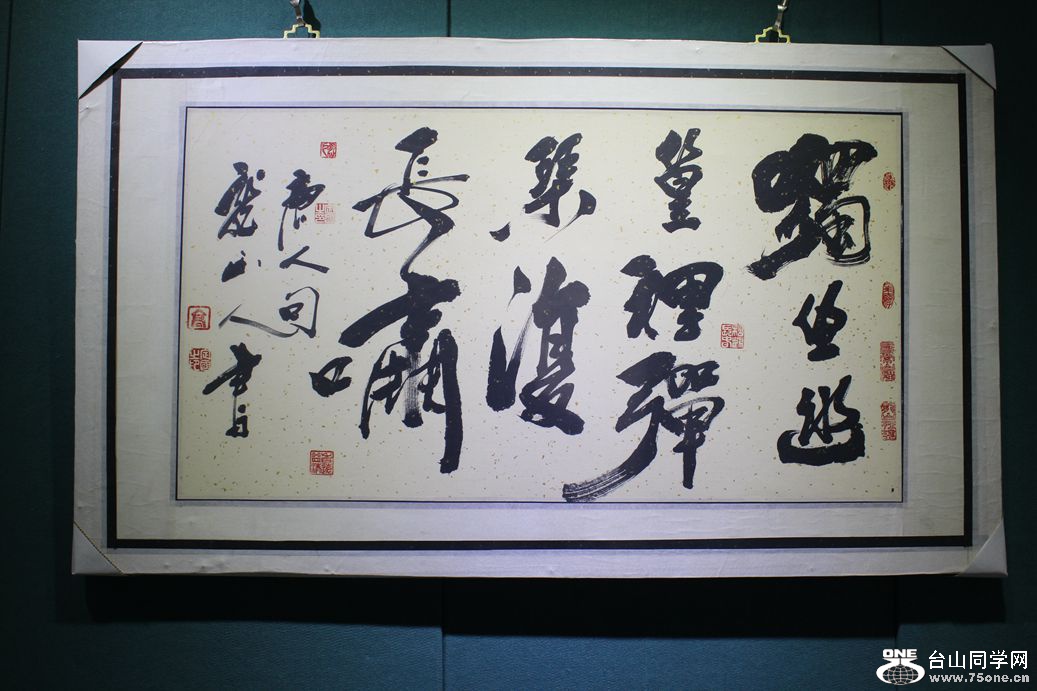 獨坐幽
篁裡彈
琴復
長嘯
唐人句
龍山人書
ONE
台山同学网
www.75one.cn